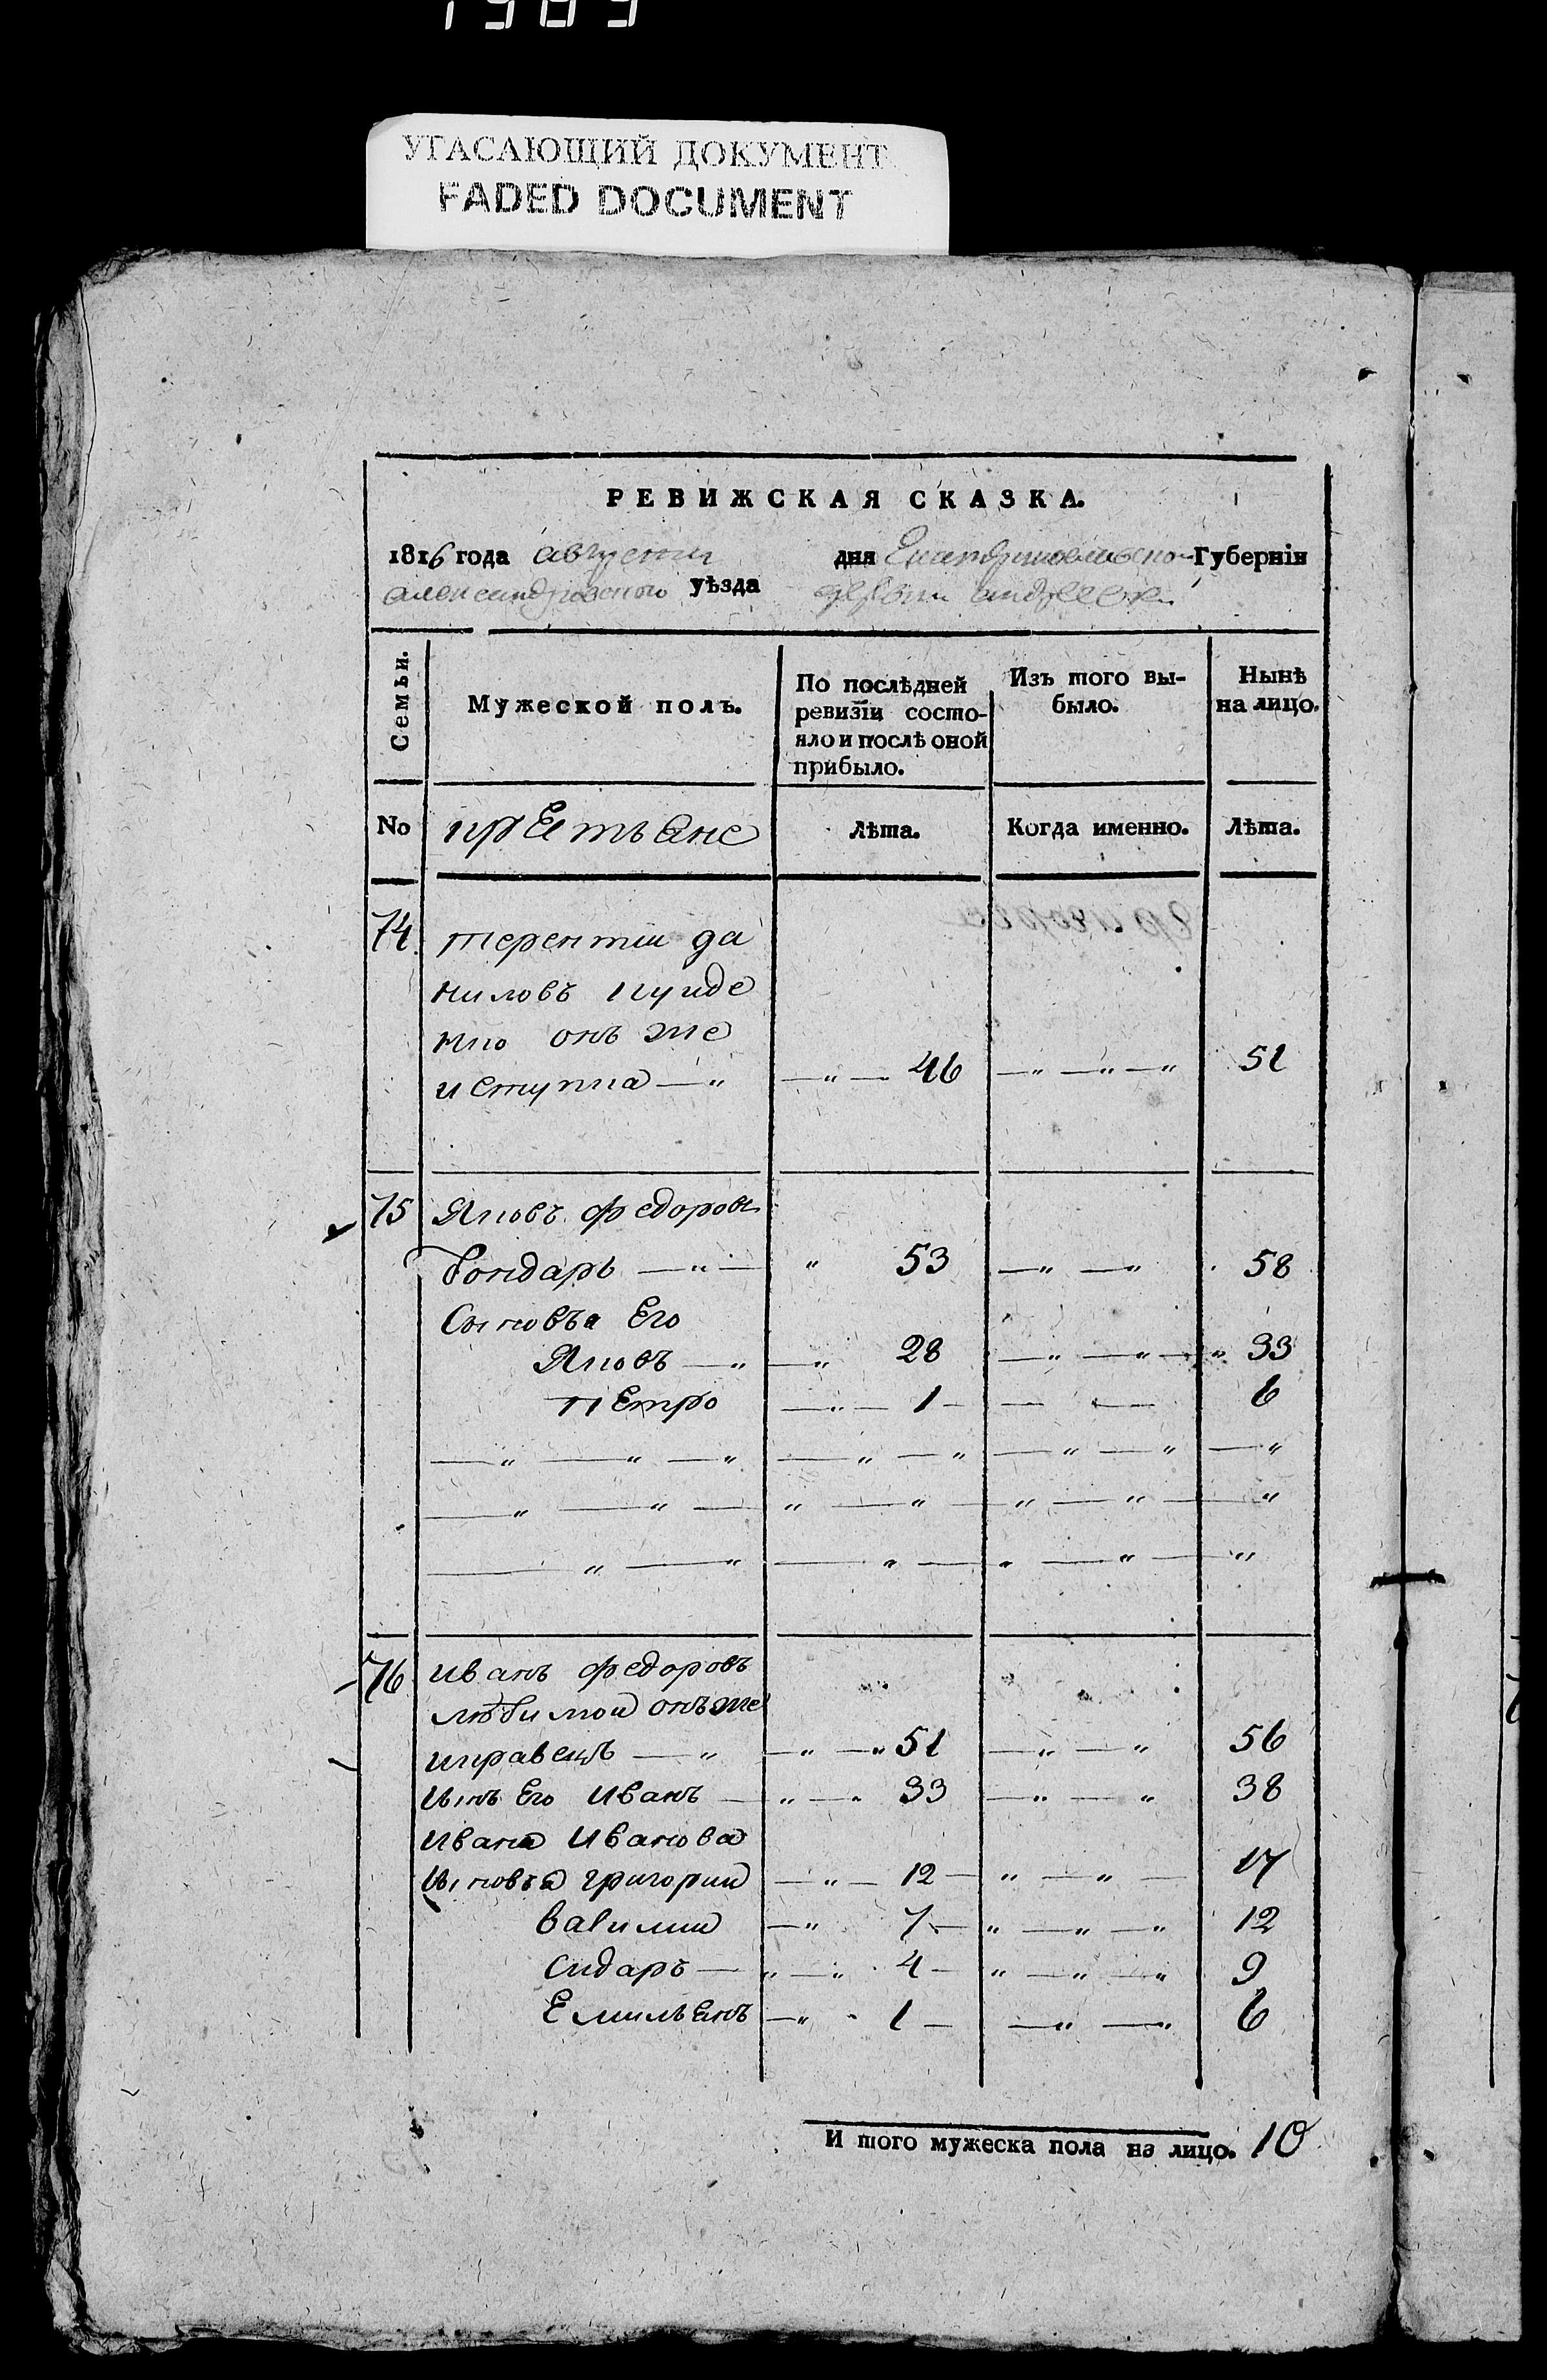 1989
УГАСАЮЩИЙ ДОКУМЕНТ
FADED DOCUMENT
РЕВИЖСКАЯ СКАЗКА.
1816 года августа дня Екатеринославской Губерніи
александровского уѣзда
Семьи. Мужеской полъ. По послѣдней ревизіи состояло и послѣ оной прибыло. Изъ того выбыло. Нынѣ на лицо.
No крестьяне Лѣта. Когда именно. Лѣта.
74 терентии да
ниловъ
онъ же
46 51
75 Яковъ федоровъ
бондарь 53 58
Сыновья Его
Яковъ 28 33
пЕтро 1 6
76 иванъ федоровъ
любимои онъ же
кравецъ 51 56
сынъ Его иванъ 33 38
ивана иванова
сыновья григории 12 17
василии 7 12
сидаръ 4 9
Емильянъ 1 6
И того мужеска пола на лицо. 10